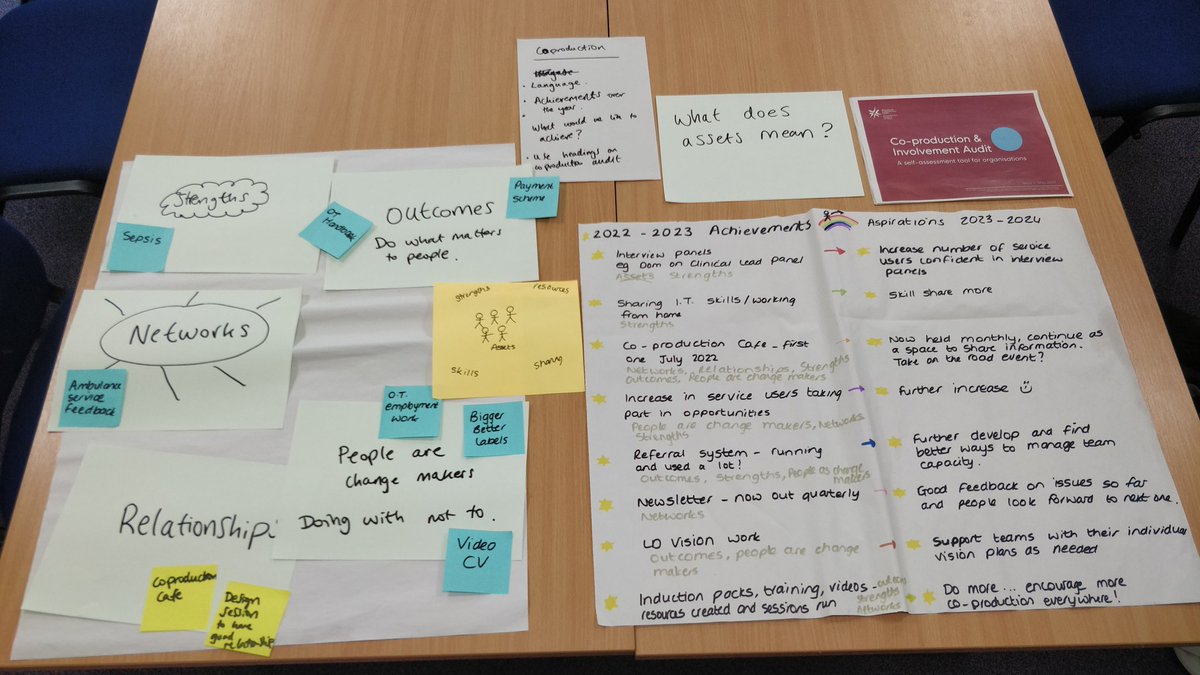 Coproduction
• Language.
• Achievements over
the year.
• What would we like to
achieve?
• Use headings on
coproduction audit
What does
assets mean?
Co-production &
Involvement Audit
A self-assessment tool for organisations
Strengths
Sepsis
OT
Handbook
OUTCOMES
Do what matters
to people.
Payment
Scheme
Networks
Ambulance
service
Feedback
strengths
resources
Assets
skills
sharing
O.T.
employment
work
Bigger
Better
Labels
People are
change makers
Doing with not to.
Video
CV
Relationship
Coproduction
Cafe
Design
Session
to have
good
relationship
2022 - 2023 Achievements
Interview panels
eg Dom on Clinical Lead panel
Assets Strengths
Sharing I.T. skills/working
from home
Strengths
Co-production Cafe - first
one July 2022
Networks, Relationships, Strengths
Outcomes, People are change makers
Increase in service users taking
part in opportunities
People are change makers, Networks
Strengths
Referral system - running
and used a lot!
Outcomes, Strengths, People as change
makers
Newsletter - now out quarterly
Networks
LD Vision work
Outcomes, people are change
makers
Induction packs, training, videos -
resources created and sessions run
Strengths
Networks
Aspirations 2023-2024
Increase number of service
users confident in interview
panels
Skill share more
Now held monthly, continue as
a space to share information.
Take on the road event?
Further increase
Further develop and find
better ways to manage team
capacity.
Good feedback on issues so far
and people look forward to next one.
Support teams with their individual
vision plans as needed
Do more... encourage more
co-production everywhere!